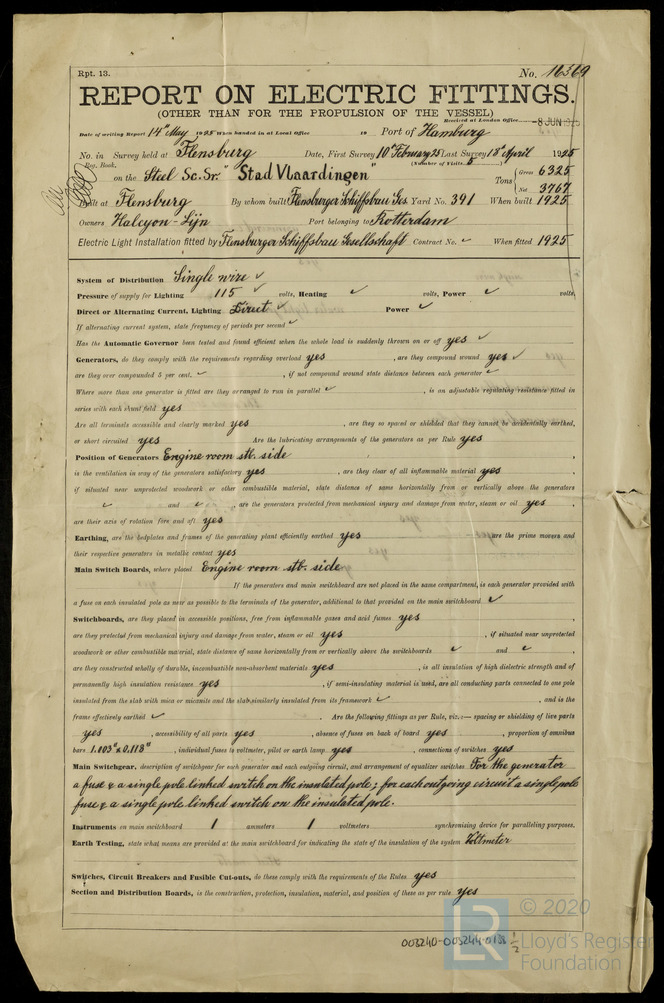 Rpt. 13.
No. 16369
REPORT ON ELECTRIC FITTINGS.
(OTHER THAN FOR THE PROPULSION OF THE VESSEL)
Received at London Office -8 JUN 1925
Date of writing Report 14th May 1925 When handed in at Local Office 19 Port of Hamburg
No. in Survey held at Flensburg Date, First Survey 10th February 25 Last Survey 18th April 1925
Reg. Book. (Number of Visits. 5 )
on the Steel Sc. Sr. "Stad Vlaardingen" Tons { Gross 6325
Net 3767
Built at Flensburg By whom built Flensburger Schiffsbau Ges. Yard No. 391 When built 1925
Owners Halcyon-Lijn Port belonging to Rotterdam
Electric Light Installation fitted by Flensburger Schiffsbau Gesellschaft Contract No. ✓ When fitted 1925
System of Distribution Single wire ✓
Pressure of supply for Lighting 115 ✓ volts, Heating ✓ volts, Power ✓ volts,
Direct or Alternating Current, Lighting Direct ✓ Power ✓
If alternating current system, state frequency of periods per second ✓
Has the Automatic Governor been tested and found efficient when the whole load is suddenly thrown on or off yes ✓
Generators, do they comply with the requirements regarding overload yes , are they compound wound yes ✓
are they over compounded 5 per cent. ✓ , if not compound wound state distance between each generator ✓
Where more than one generator is fitted are they arranged to run in parallel ✓ , is an adjustable regulating resistance fitted in
series with each shunt field yes
Are all terminals accessible and clearly marked yes , are they so spaced or shielded that they cannot be accidentally earthed,
or short circuited yes Are the lubricating arrangements of the generators as per Rule yes
Position of Generators Engine room stb. side
is the ventilation in way of the generators satisfactory yes , are they clear of all inflammable material yes
if situated near unprotected woodwork or other combustible material, state distance of same horizontally from or vertically above the generators
✓ and ✓ , are the generators protected from mechanical injury and damage from water, steam or oil yes ,
are their axis of rotation fore and aft yes
Earthing, are the bedplates and frames of the generating plant efficiently earthed yes are the prime movers and
their respective generators in metallic contact yes
Main Switch Boards, where placed Engine room stb. side
If the generators and main switchboard are not placed in the same compartment, is each generator provided with
a fuse on each insulated pole as near as possible to the terminals of the generator, additional to that provided on the main switchboard ✓
Switchboards, are they placed in accessible positions, free from inflammable gases and acid fumes yes
are they protected from mechanical injury and damage from water, steam or oil yes , if situated near unprotected
woodwork or other combustible material, state distance of same horizontally from or vertically above the switchboards ✓ and ✓ ,
are they constructed wholly of durable, incombustible non-absorbent materials yes , is all insulation of high dielectric strength and of
permanently high insulation resistance yes , if semi-insulating material is used, are all conducting parts connected to one pole
insulated from the slab with mica or micanite and the slab similarly insulated from its framework ✓ , and is the
frame effectively earthed ✓ . Are the following fittings as per Rule, viz.:— spacing or shielding of live parts
yes , accessibility of all parts yes , absence of fuses on back of board yes , proportion of omnibus
bars 1.103"x0.118" , individual fuses to voltmeter, pilot or earth lamp yes , connections of switches yes
Main Switchgear, description of switchgear for each generator and each outgoing circuit, and arrangement of equalizer switches For the generator
a fuse & a single pole linked switch on the insulated pole; for each outgoing circuit a single pole
fuse & a single pole linked switch on the insulated pole.
Instruments on main switchboard 1 ammeters 1 voltmeters synchronising device for paralleling purposes.
Earth Testing, state what means are provided at the main switchboard for indicating the state of the insulation of the system Voltmeter
Switches, Circuit Breakers and Fusible Cut-outs, do these comply with the requirements of the Rules yes
Section and Distribution Boards, is the construction, protection, insulation, material, and position of these as per rule yes
003240-003244-0138 1/2
© 2020
LR
Lloyd's Register
Foundation